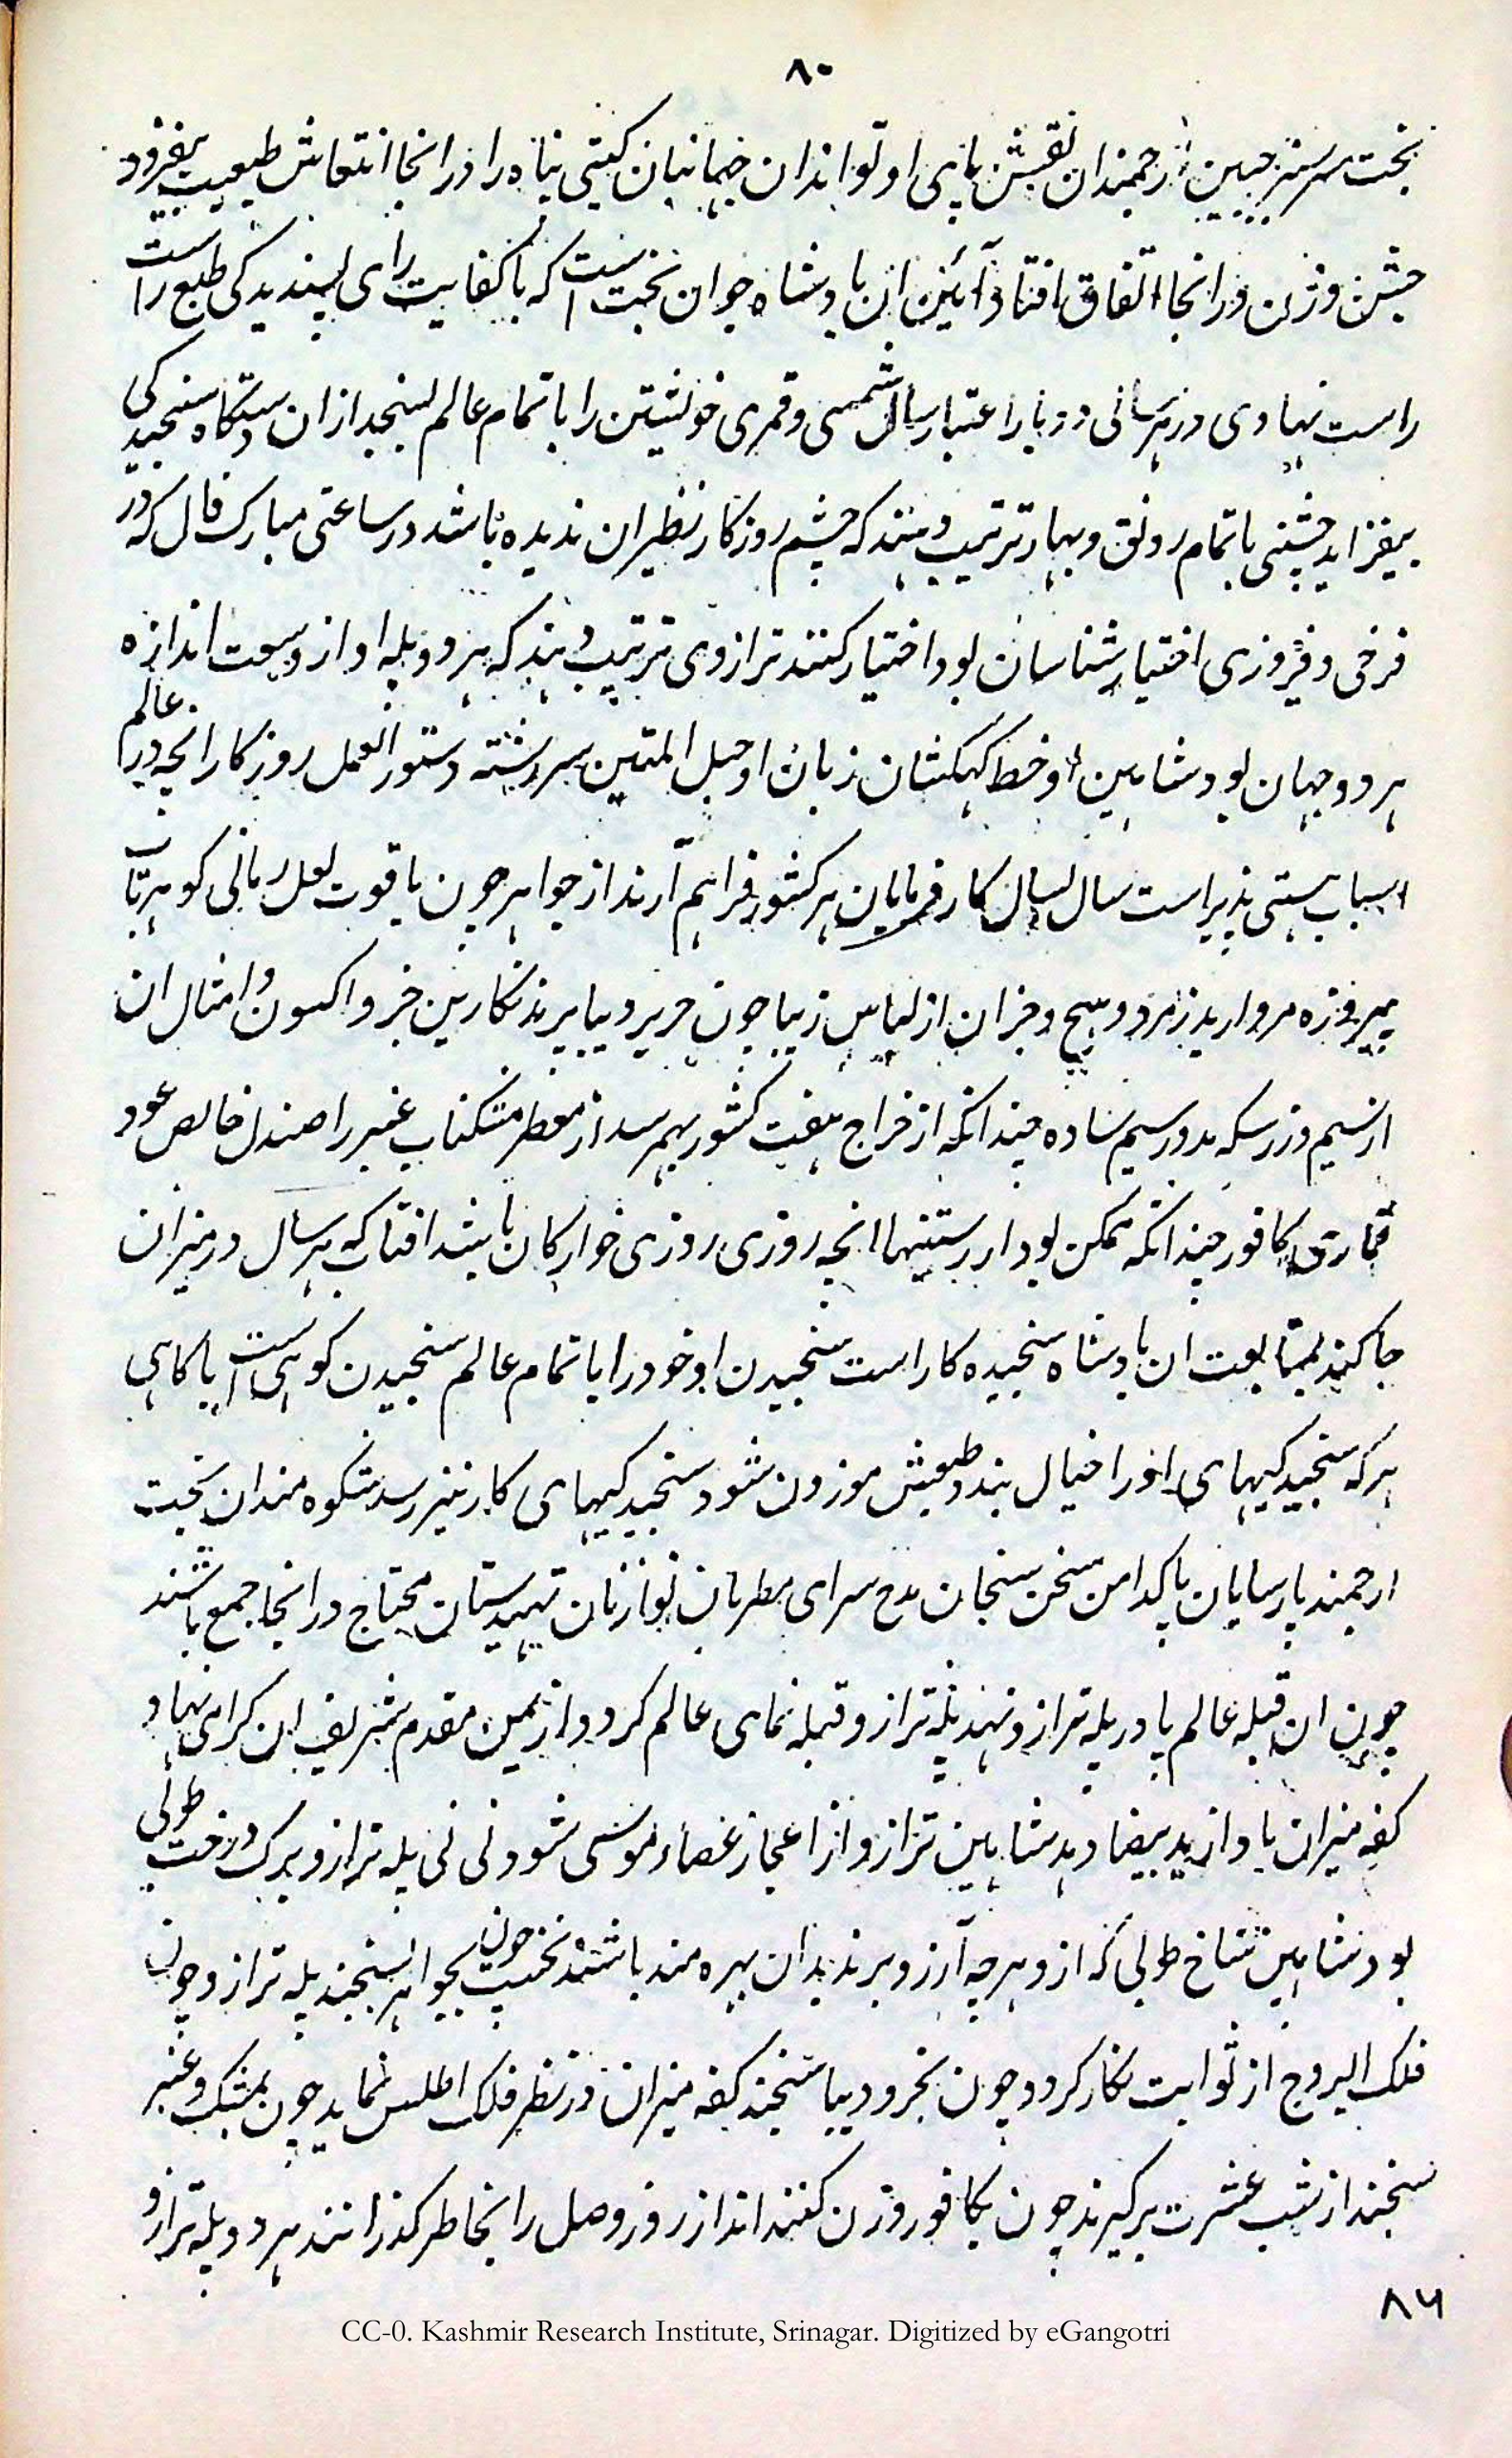 ۸۰
بخت سرسبز جبین ارجمندان نقش پای او تو اندان جهانبان کیتی پناه را در انجا انتعاش طبیعت بیفزود
جشن وزن در انجا اتفاق افتاد آئین ان بادشاه جوان بخت است که با کفایت رای پسندیدکی طبع راست
راست نهادی در هر سالی دو بار اعتبار سال شمسی و قمری خویشتن را با تمام عالم بسنجد از ان دستکاه سنجیدکی
بیفزاید جشنی با تمام رونق و بهار ترتیب دهند که چشم روزکار نظیر ان ندیده باشد در ساعتی مبارک فال که در
فرخی و فیروزی اختیار شناسان بود اختیار کنند ترازوی ترتیب دهند که هر دو پله او از وسعت اندازه
هر دو جهان بود شاهین او خط کهکشان زبان او حبل المتین سررشته دستور العمل روزکار انچه در عالم
اسباب هستی پذیر است سال بسال کارفرمایان هر کشور فراهم آرند از جواهر چون یاقوت لعل رمانی کوهر ناب
پیروزه مروارید زمرد و جز ان از لباس زیبا چون حریر دیبا پرند نکارین خز و اکسون و امثال ان
از سیم و زر سکه بدور سیم ساده چندانکه از خراج هفت کشور بهم رسد از معطر مشکناب عنبر را صندل خالص عود
قماری کافور چندانکه ممکن بود از رستنیها انچه روزی روزی خوارکان باشد افتاب که هر سال در میزان
جا کند بمتابعت ان بادشاه سنجیده کار است سنجیدن او خود را با تمام عالم سنجیدن کوهی است با کاهی
هر که سنجیدکیهای او را خیال بندد طبعش موزون شود سنجیدکیهای کار نیز رسد شکوه مندان بخت
ارجمند پارسایان پاکدامن سخن سنجان مدح سرای مطربان نوازنان تهیدستان محتاج در انجا جمع باشند
چون ان قبله عالم پا در پله ترازو نهد پله ترازو قبله نمای عالم کردد از یمن مقدم شریف ان کرامی نهاد
کفه میزان یاد از ید بیضا دهد شاهین ترازو از اعجاز عصاء موسی شود نی نی پله ترازو برک درخت طوبی
بود شاهین شاخ طوبی که از و هر چه آرزو برند بدان بهره مند باشند نخست چون بجواهر بسنجند پله ترازو چون
فلک البروج از ثوابت نکار کردد چون بخز و دیبا سنجند کفه میزان در نظر فلک اطلس نماید چون بمشک و عنبر
سنجند از شب عشرت برکیرند چون بکافور وزن کنند انداز روز وصل را بخاطر کذرانند هر دو پله ترازو
۸۶
CC-0. Kashmir Research Institute, Srinagar. Digitized by eGangotri